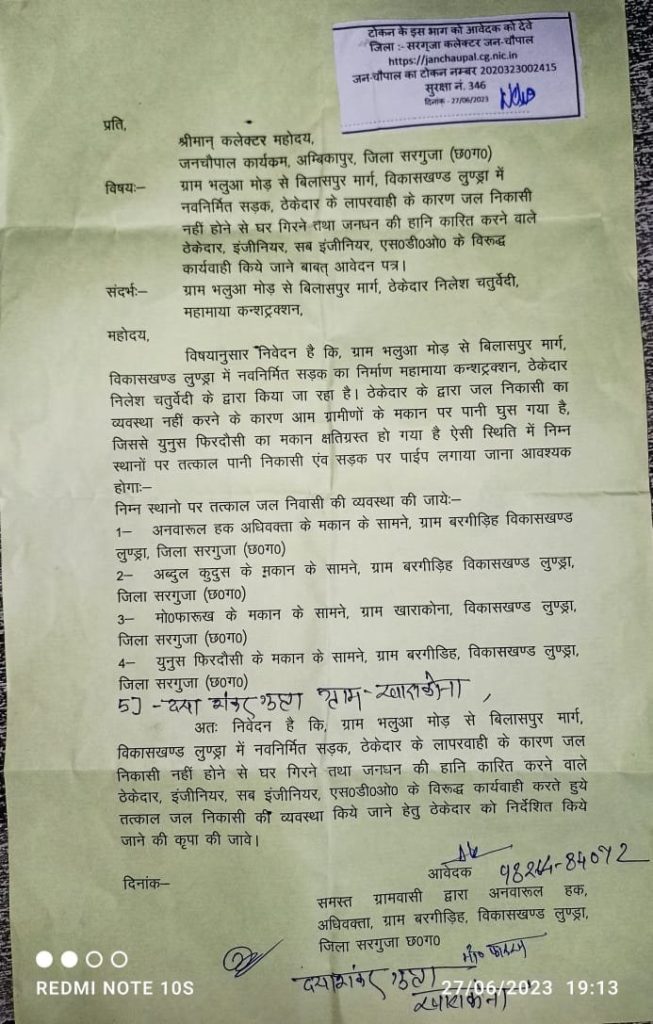 टोकन के इस भाग को आवेदक को देवे
जिला :- सरगुजा कलेक्टर जन-चौपाल
https://janchaupal.cg.nic.in
जन-चौपाल का टोकन नम्बर 2020323002415
सुरक्षा नं. 346
दिनांक - 27/06/2023
प्रति,
श्रीमान् कलेक्टर महोदय,
जनचौपाल कार्यकम, अम्बिकापुर, जिला सरगुजा (छ0ग0)
विषयः– ग्राम भलुआ मोड़ से बिलासपुर मार्ग, विकासखण्ड लुण्ड्रा में
नवनिर्मित सड़क, ठेकेदार के लापरवाही के कारण जल निकासी
नहीं होने से घर गिरने तथा जनधन की हानि कारित करने वाले
ठेकेदार, इंजीनियर, सब इंजीनियर, एस0डी0ओ0 के विरूद्ध
कार्यवाही किये जाने बाबत् आवेदन पत्र।
संदर्भः– ग्राम भलुआ मोड़ से बिलासपुर मार्ग, ठेकेदार निलेश चतुर्वेदी,
महामाया कन्शट्रक्शन,
महोदय,
विषयानुसार निवेदन है कि, ग्राम भलुआ मोड़ से बिलासपुर मार्ग,
विकासखण्ड लुण्ड्रा में नवनिर्मित सड़क का निर्माण महामाया कन्शट्रक्शन, ठेकेदार
निलेश चतुर्वेदी के द्वारा किया जा रहा है। ठेकेदार के द्वारा जल निकासी का
व्यवस्था नहीं करने के कारण आम ग्रामीणों के मकान पर पानी घुस गया है,
जिससे युनुस फिरदौसी का मकान क्षतिग्रस्त हो गया है ऐसी स्थिति में निम्न
स्थानों पर तत्काल पानी निकासी एंव सड़क पर पाईप लगाया जाना आवश्यक
होगाः–
निम्न स्थानो पर तत्काल जल निवासी की व्यवस्था की जायेः–
1– अनवारूल हक अधिवक्ता के मकान के सामने, ग्राम बरगीड़िह विकासखण्ड
लुण्ड्रा, जिला सरगुजा (छ0ग0)
2– अब्दुल कुदुस के मकान के सामने, ग्राम बरगीड़िह विकासखण्ड लुण्ड्रा,
जिला सरगुजा (छ0ग0)
3– मो0फारूख के मकान के सामने, ग्राम खाराकोना, विकासखण्ड लुण्ड्रा,
जिला सरगुजा (छ0ग0)
4– युनुस फिरदौसी के मकान के सामने, ग्राम बरगीडिह, विकासखण्ड लुण्ड्रा,
जिला सरगुजा (छ0ग0)
5] - दया शंकर ग्राम - खाराकोना,
अतः निवेदन है कि, ग्राम भलुआ मोड़ से बिलासपुर मार्ग,
विकासखण्ड लुण्ड्रा में नवनिर्मित सड़क, ठेकेदार के लापरवाही के कारण जल
निकासी नहीं होने से घर गिरने तथा जनधन की हानि कारित करने वाले
ठेकेदार, इंजीनियर, सब इंजीनियर, एस0डी0ओ0 के विरूद्ध कार्यवाही करते हुये
तत्काल जल निकासी की व्यवस्था किये जाने हेतु ठेकेदार को निर्देशित किये
जाने की कृपा की जावे।
आवेदक 98264-84092
दिनांक–
समस्त ग्रामवासी द्वारा अनवारूल हक,
अधिवक्ता, ग्राम बरगीड़िह, विकासखण्ड लुण्ड्रा,
जिला सरगुजा छ0ग0
दयाशंकर
खाराकोना
REDMI NOTE 10S
27/06/2023 19:13